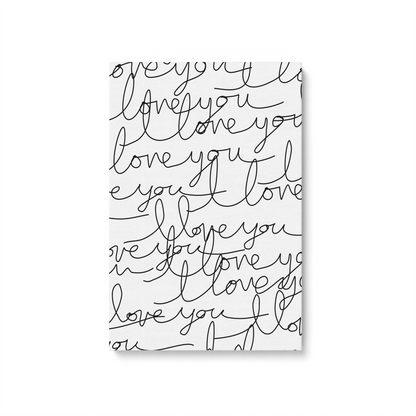 love you I l
love you
I love you
love you
e you I love
I love you
ove you I love you
I love you
I love you I lo
you I